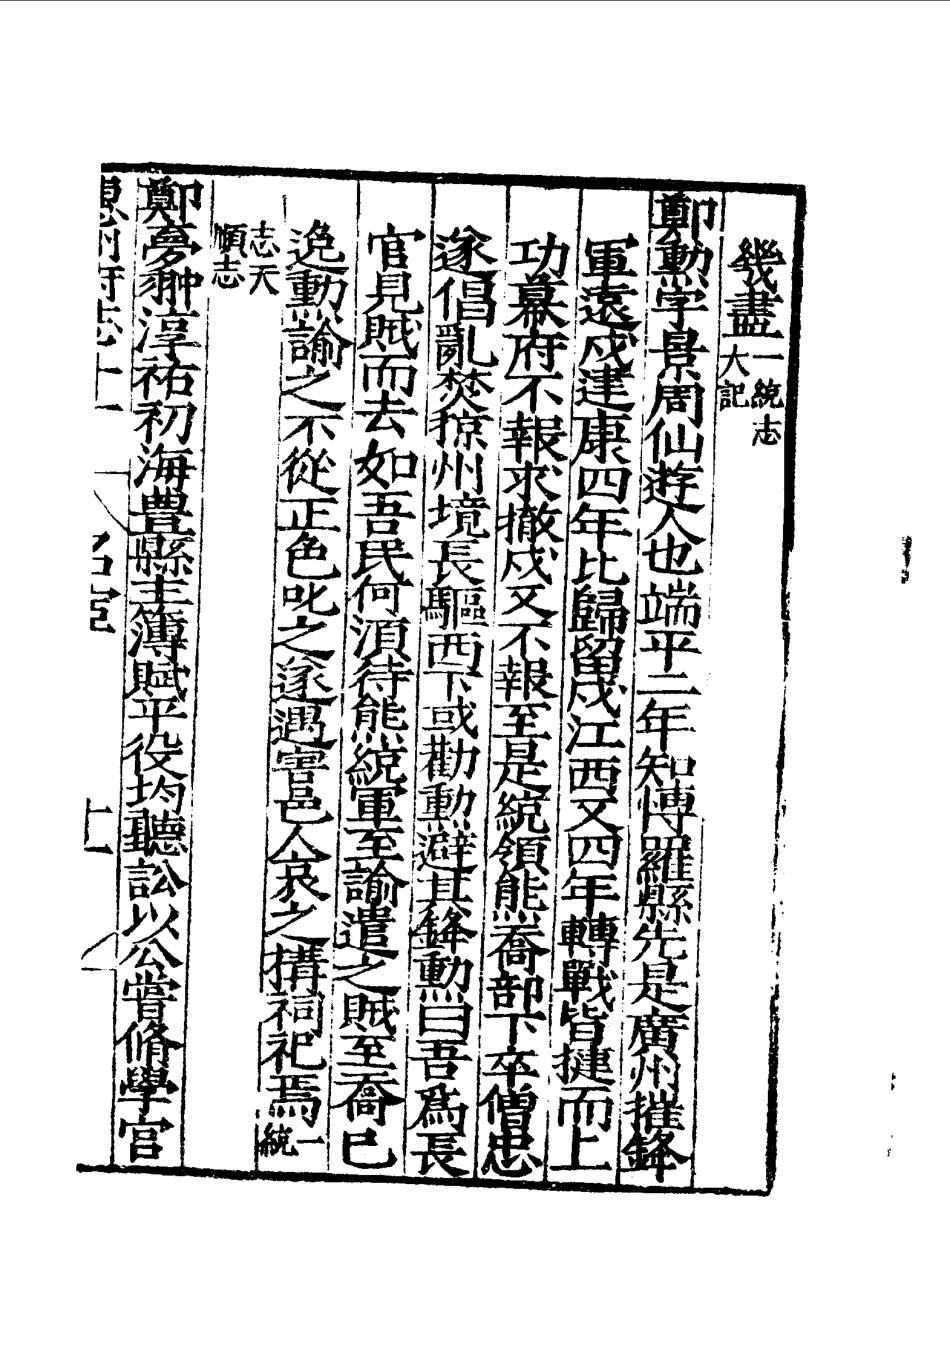 幾盡一統志大記
鄭勳字景周仙遊人也端平二年知博羅縣先是廣州摧鋒
軍遠戍建康四年比歸留戍江西又四年轉戰皆捷而上
功幕府不報求撤戍又不報至是統領熊喬部下卒僧忠
遂倡亂焚掠州境長驅西下或勸勳避其鋒勳曰吾爲長
官見賊而去如吾民何湏待熊統軍至諭遣之賊至喬已
逸勳諭之不從正色叱之遂遇害邑人哀之搆祠祀焉一統
志天順志
鄭夢翀淳祐初海豐縣主簿賦平役均聽訟以公嘗脩學官
惠州府志十一 名宦 十一